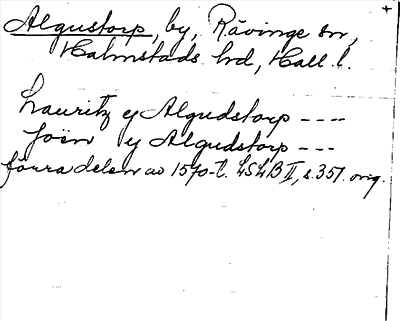 Algustorp, by, Rävinge sn,
Halmstads hd, Hall. l.
Lauritz y Algudstorp ----
Joën y Algudstorp ---
förra delen av 1570-t. LSLB II, s. 357. orig.